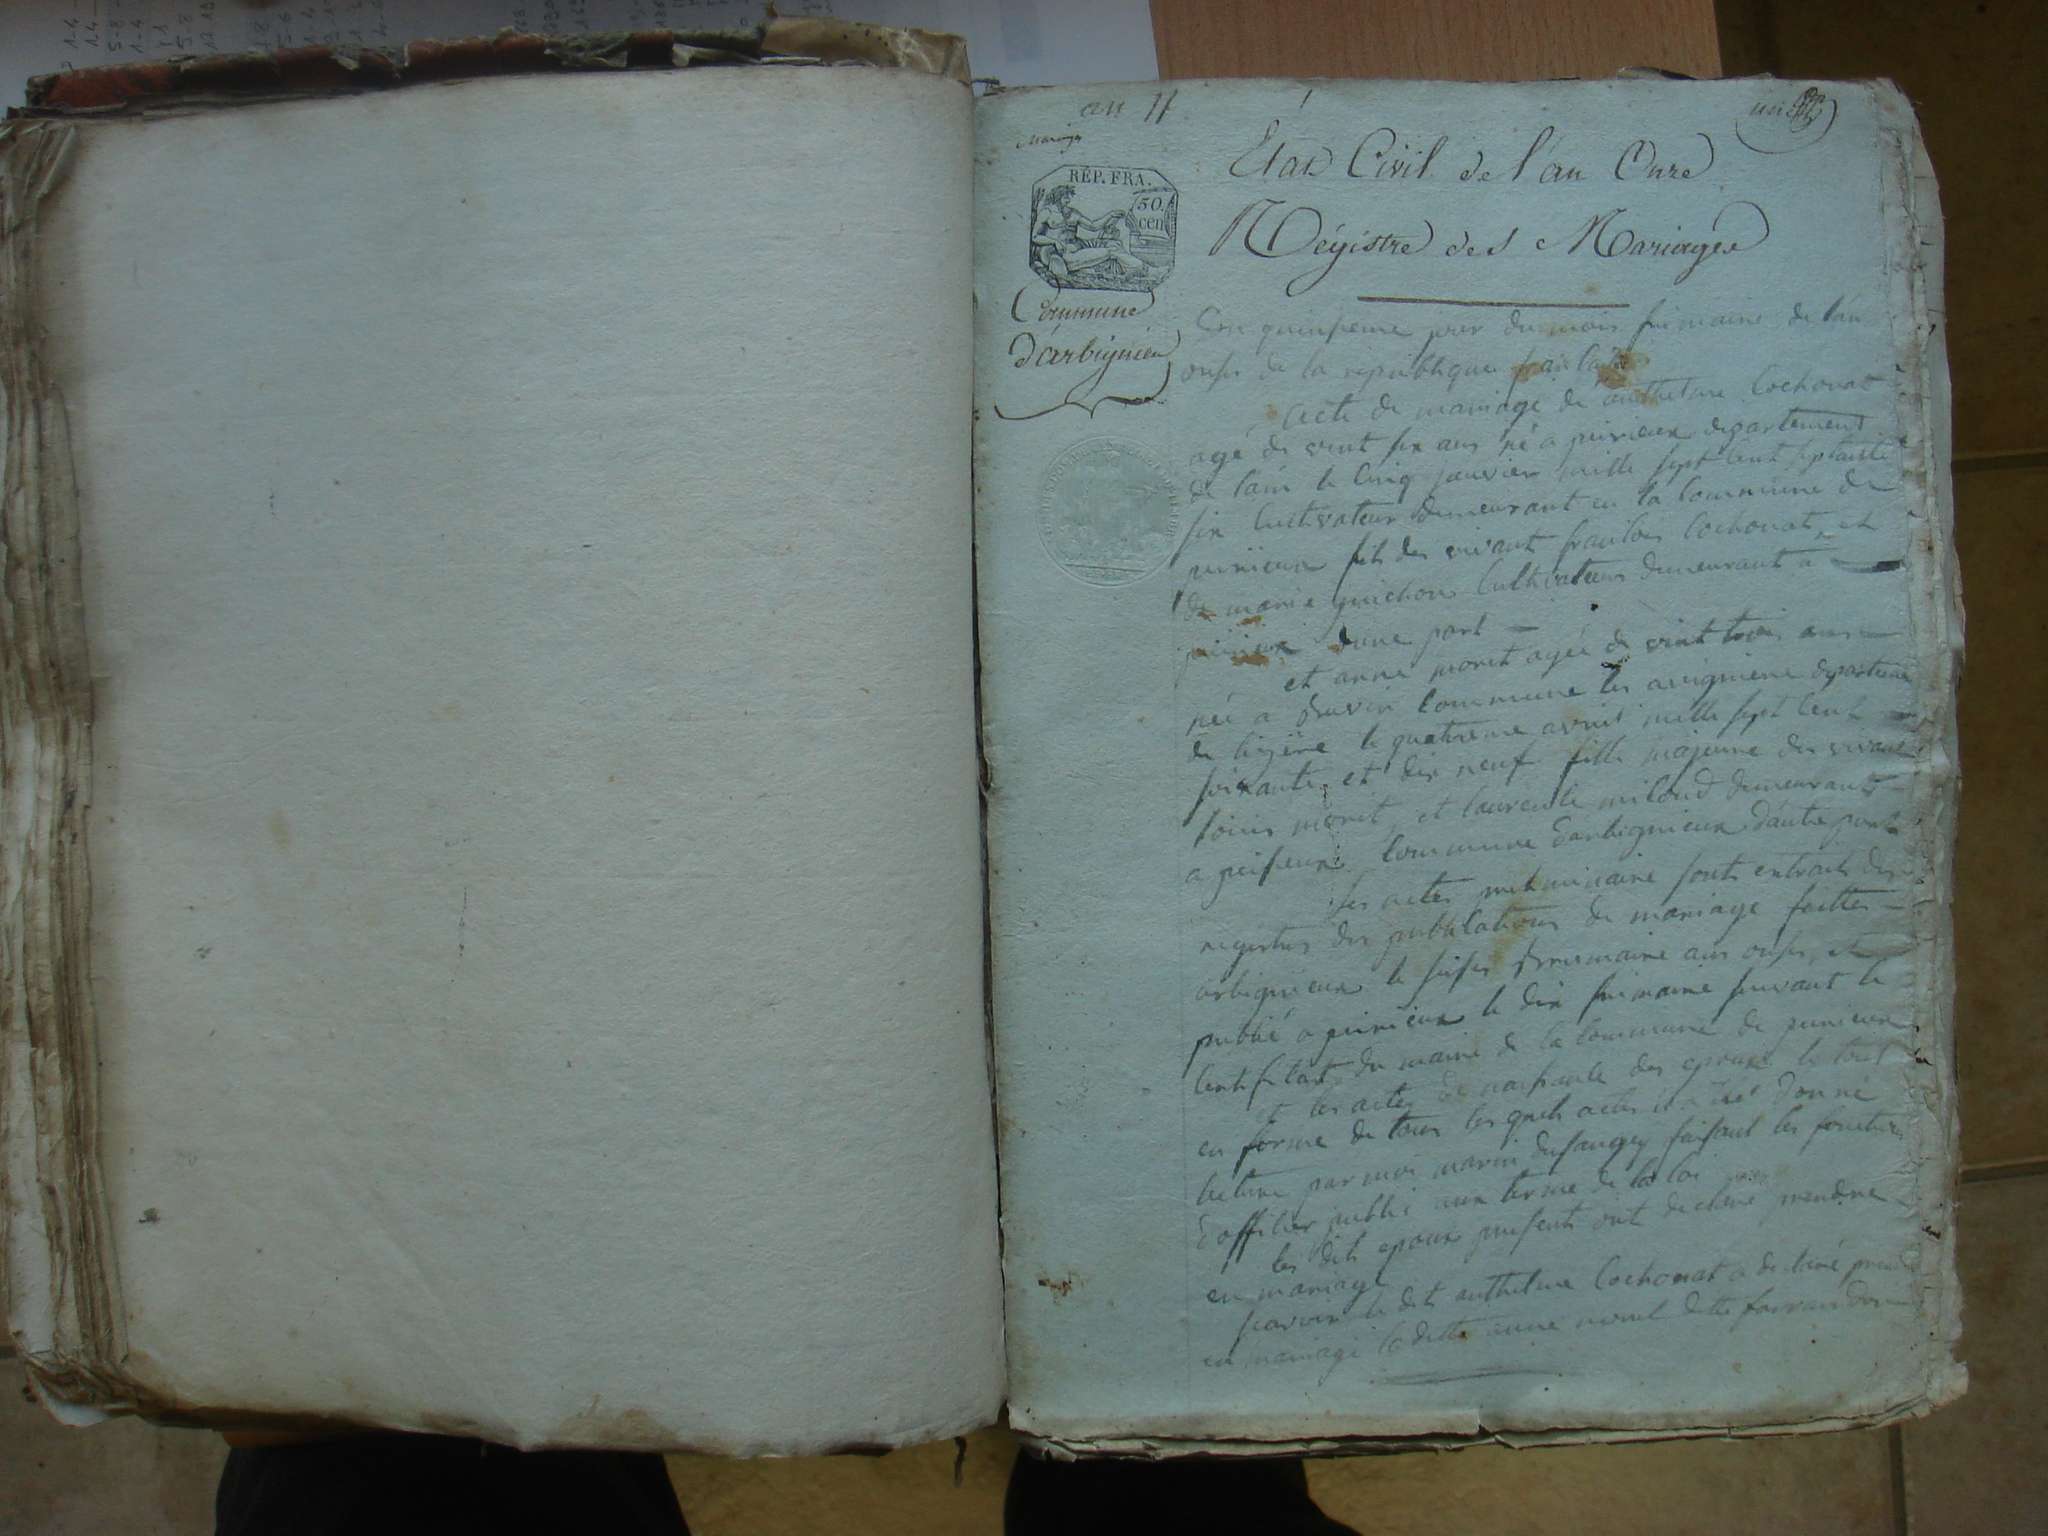 an 11
Mariage
RÉP. FRA.
50
cen
Commune
d'arbignieu
État Civil de l'an Onze
Régistre des Mariages
quinsieme jour du mois frimaire de l'an
onse de la republique francaise
acte de mariage de anthelme Cochonat
agé de vint six ans né a peirieux departement
de l'ain le cinq janvier mille sept cent septante
six cultivateur demeurant en la commune de
peirieux fils des vivant francois cochonat, et
de marie guichon cultivateurs demeurant a
peirieux d'une part
et anne moret agée de vint trois ans
née a commune les avignieres departement
de lizere le quatrieme avril mille sept cent
soixante et dix neuf fille majeure des vivant
louis moret, et laurence miloud demeurant
a peisieux commune d'arbignieux d'autre part
les actes preliminaire sont extraits des
registres des publications de mariage faittes
arbignieux le seise brumaire ans onse, et
publié a peirieux le dix frimaire suivant le
certificat du maire de la commune de peirieux
et les actes de naissance des epoux le tout
en forme de tous les quels actes il a été donné
lecture par moi marin dufaugey faisant les fonctions
d'officier public aux terme de la loi
les dits epoux presents ont declaré prendre
en mariage
scavoir le dit anthelme Cochonat a declaré prendre
en mariage la ditte anne moret ditte